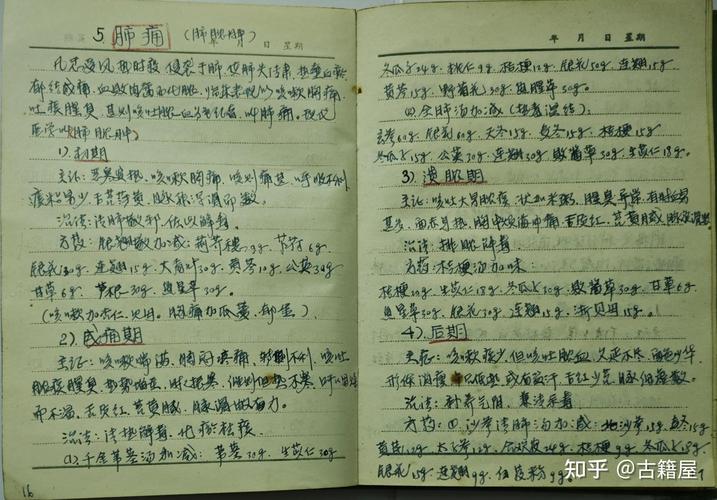 5. 肺痈 (肺脓肿)
日 星期
凡感受风热时疫侵袭于肺,使肺失清肃,热壅血瘀
郁结成痈,血败肉腐而化脓,临床表现以咳嗽胸痛,
吐痰腥臭,甚则咳吐脓血为特征者,叫肺痈。现代
医学叫肺脓肿)
1) 初期
主证:恶寒发热,咳嗽胸痛,咳则痛甚,呼吸不利
痰粘量少,舌苔薄黄,脉浮滑而数。
治法:清肺散邪,佐以解毒。
方药:银翘散加减:荆芥穗9g 芦
银花30g 连翘15g 大青叶30g 黄芩12g 公英30g
甘草6g 芦根30g 鱼腥草30g。
(咳嗽加杏仁、贝母。胸痛加瓜蒌、郁金。)
2) 成痈期
主证:咳嗽喘满,胸胁疼痛,转侧不利,咳吐
脓痰腥臭,
而不渴,舌质红,苔黄腻,脉滑数有力。
治法:清热解毒,化瘀祛痰。
(1) 千金苇茎汤加减:苇茎30g 生苡仁30g
16
年 月 日 星期
冬瓜子24g 桃仁9g 桔梗12g 银花50g 连翘15g
黄芩15g 野菊花30g 鱼腥草30g
60g 银花60g 天冬15g 麦冬15g 桔梗15g
冬瓜子15g 公英30g 连翘30g 败酱草30g 生苡仁18g。
3) 溃脓期
主证:咳吐大量脓痰,状如米粥,腥臭异常,
舌质红,苔黄腻,脉
治法:排脓解毒
方药:桔梗汤加味
桔梗 生苡仁18g 冬瓜子30g 败酱草30g 甘草6g
鱼腥草30g 银花30g 连翘15g 浙贝母15g。
4) 后期
主症:咳嗽痰少,但咳吐脓血,久延不净,面色少华
形体消瘦 或有盗汗,舌红少苔,脉细数。
治法:补养元阴,兼清余毒
方药:(1) 沙参清肺汤加减:北沙参15g 麦冬15g
太子参12g 合欢皮24g 桔梗9g 冬瓜子18g
银花15g 连翘9g 白及粉9g。
知乎 @古籍屋